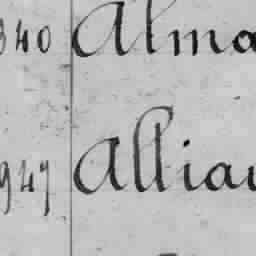 340 Alma
947 Allian